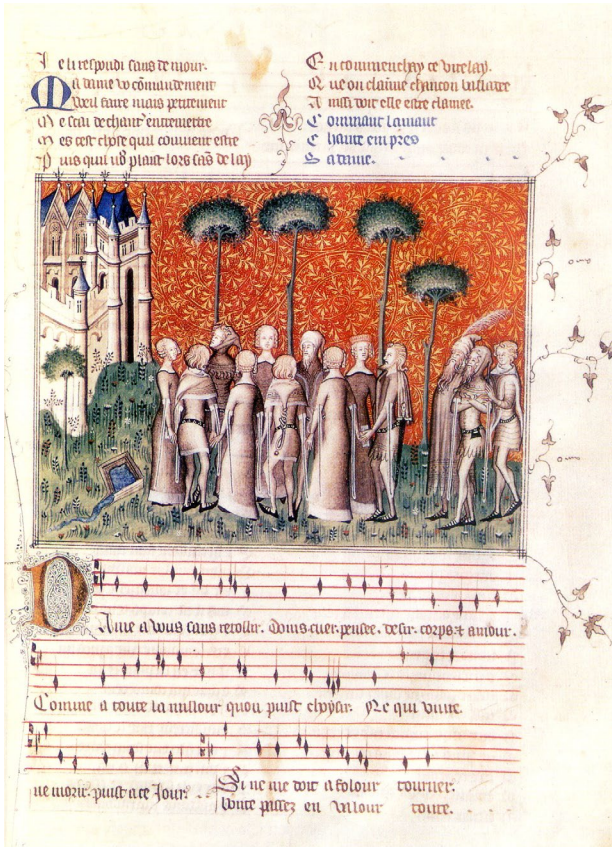 Je li respondi sans demour.
Ma dame vo cõmandement
Weil faire mais petitement
Me scai de chant entremettre
Mes cest chose quil couvient estre
Puis quil vo9 plaist lors sãs delay
En commenchay ce virelay.
Que on claime chancon balladee
Ainssi doit elle estre clamee.
Comment lamant
chante empres
Sa dame.
Dame a vous sans retollir. Doins cuer. pensee. desir. corps ⁊ amour.
Comme a toute la millour quon puist choysir. Ne qui vivre.
ne morir. puist a ce Jour.
Si ne me doit a folour tourner.
bonte passez en valour toute.